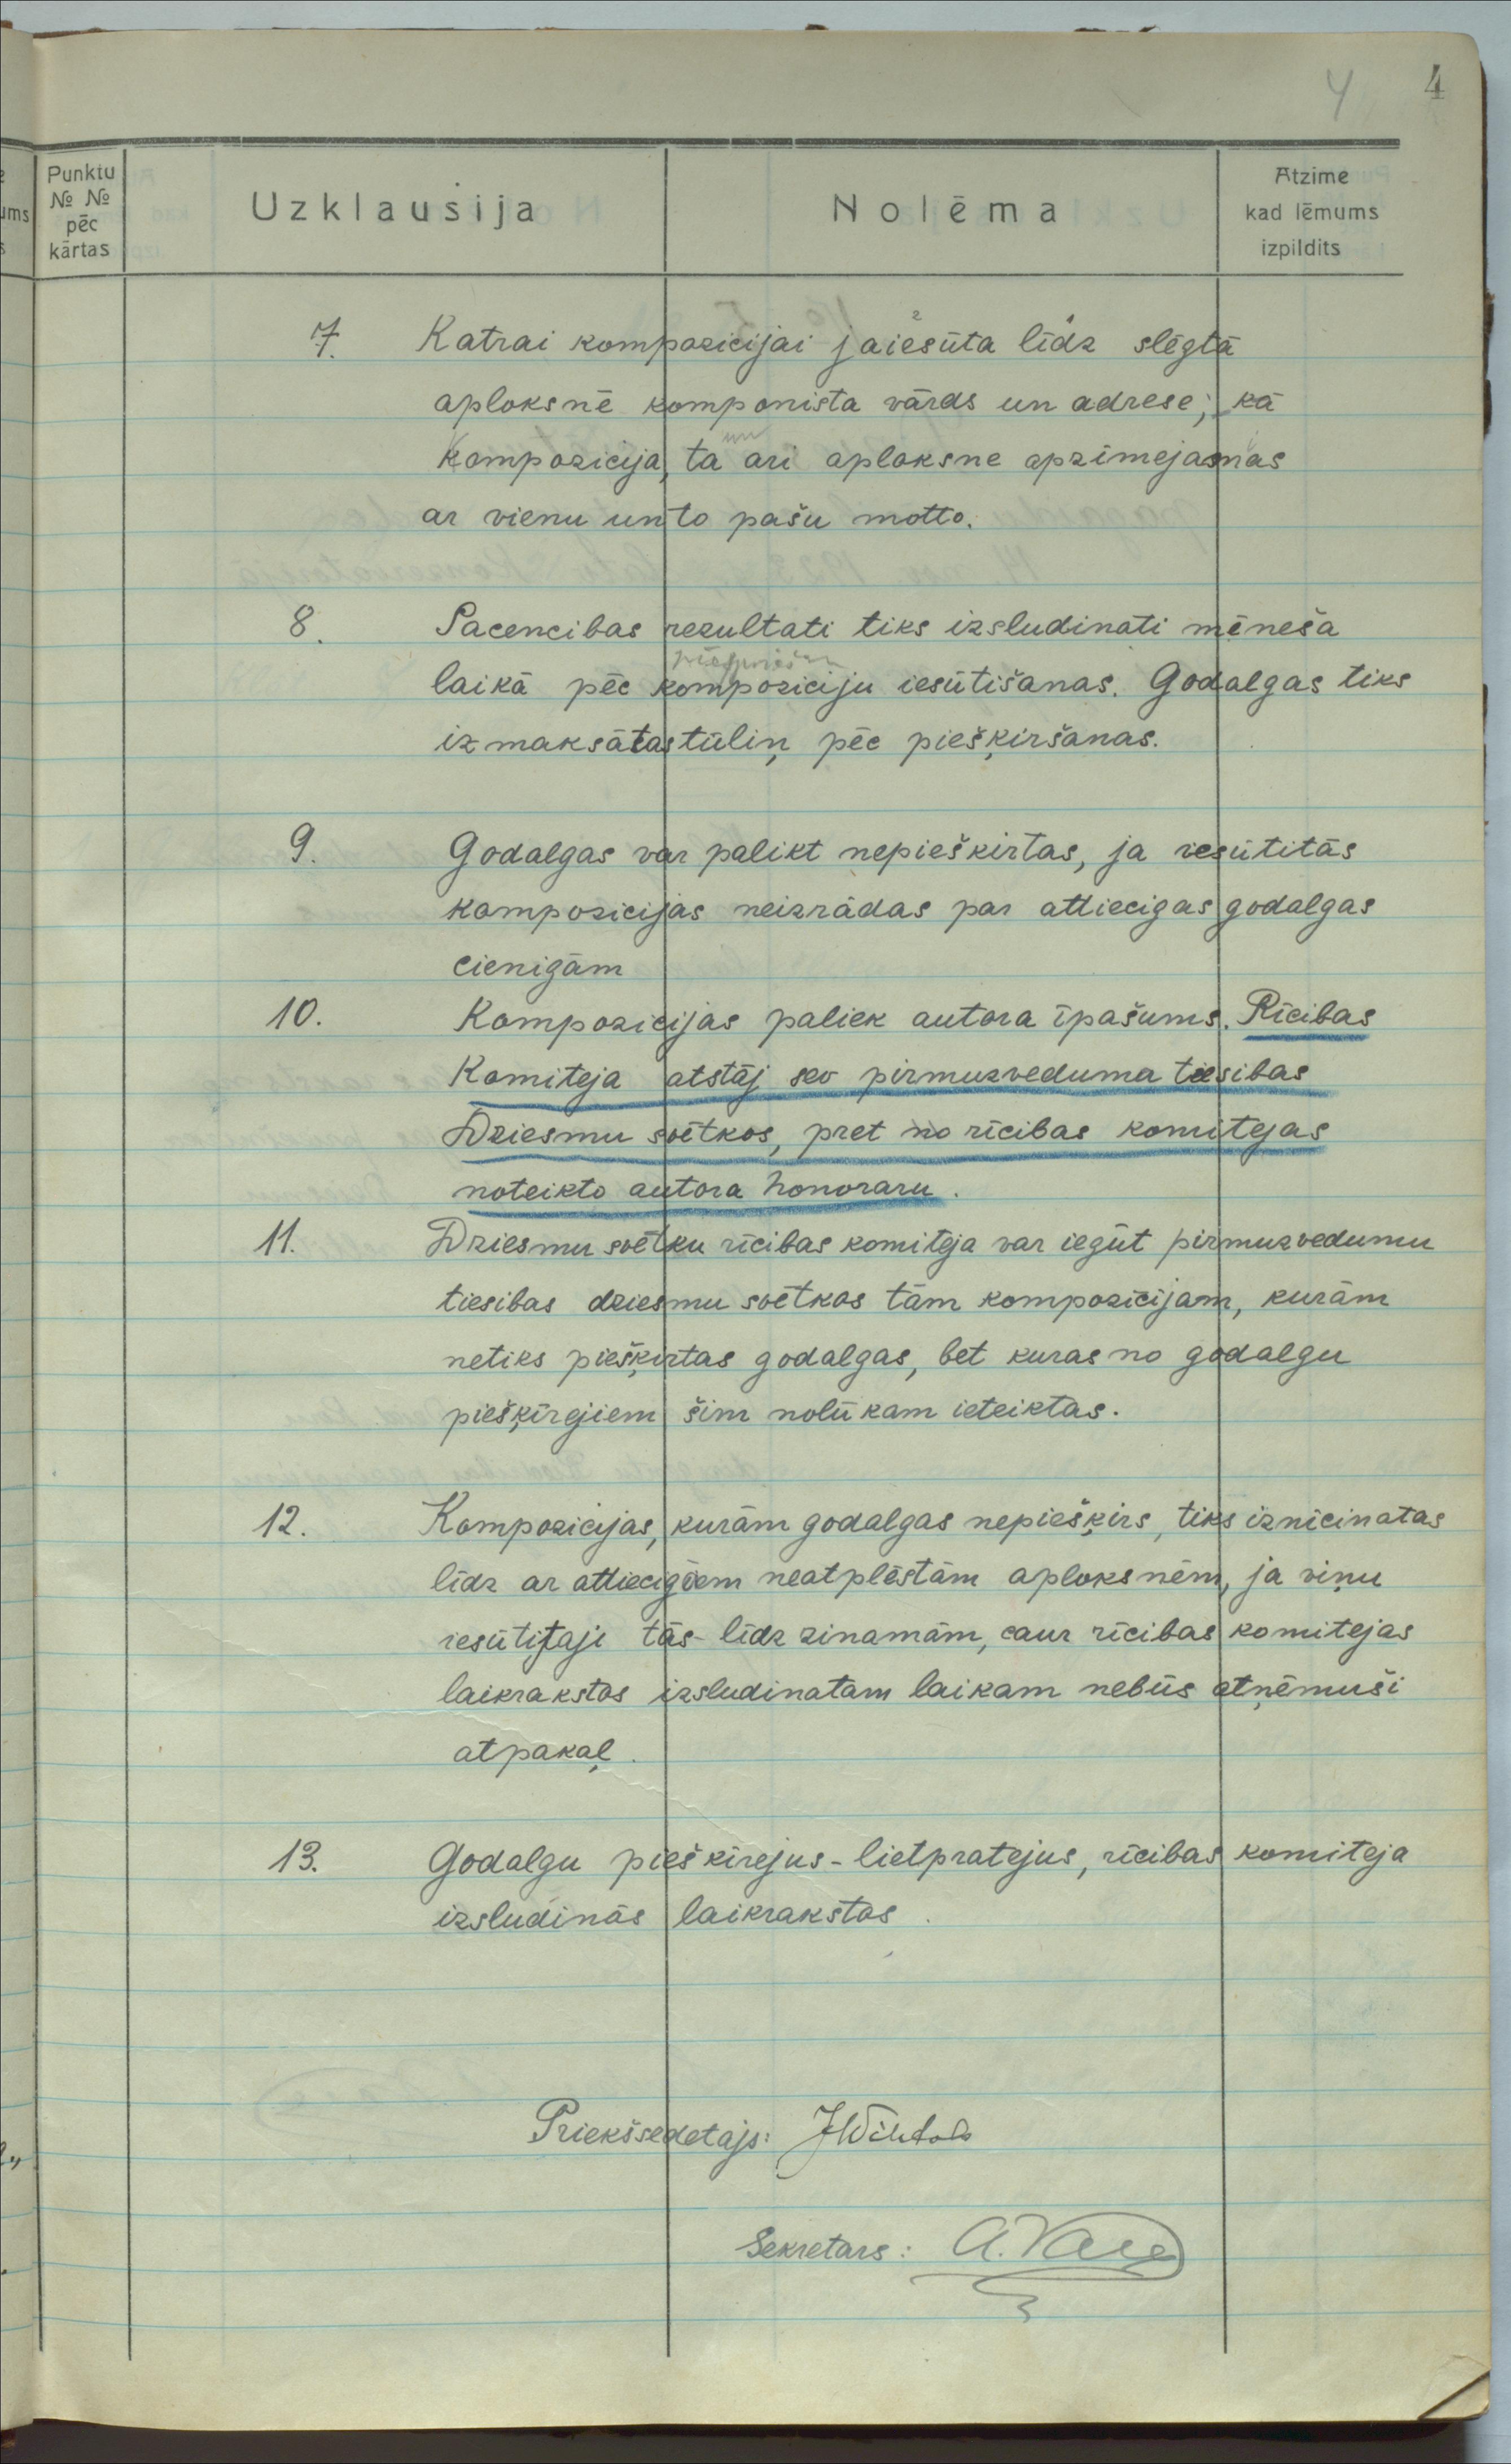 4 4
Punktu
№ №
pēc
kārtas
Uzklausija
Nolēma
Atzime
kad lēmums
izpildits
7. Katrai kompozicijai jaiesūta līdz slēgtā
aploksnē komponista vārds un adrese; kā
kompozicija, ta un ari aploksne apzīmejamas
ar vienu un to pašu motto.
8. Sacencibas rezultati tiks izsludināti mēneša
laikā pēc kompoziciju iesūtišanas. Godalgas tiks
izmaksātas tūliņ pēc piešķiršanas.
9. Godalgas var palikt nepieškirtas, ja iesūtitās
kompozicijas neizrādas par attiecigas godalgas
cienigām
10. Kompozicijas paliek autora īpašums. Rīcibas
Komiteja atstāj sev pirmuzveduma tiesibas
Dziesmu svētkos, pret no rīcibas komitejas
noteikto autora honoraru.
11. Dziesmu svētku rīcibas komiteja var iegūt pirmuzvedumu
tiesibas dziesmu svētkos tām kompozīcijam, kurām
netiks piešķirtas godalgas, bet kuras no godalgu
piešķīrejiem šim nolūkam ieteiktas.
12. Kompozicijas, kurām godalgas nepiešķirs, tiks iznīcinatas
līdz ar attiecigēm neatplēstām aploksnēm, ja viņu
iesūtitaji tās līdz zinamām, caur rīcibas komitejas
laikrakstos izsludinatam laikam nebūs atņēmuši
atpakaļ.
13. Godalgu pieškīrejus - lietpratejus, rīcibas komiteja
izsludinās laikrakstos.
Priekšsedetajs: JWihtols
Sekretars: